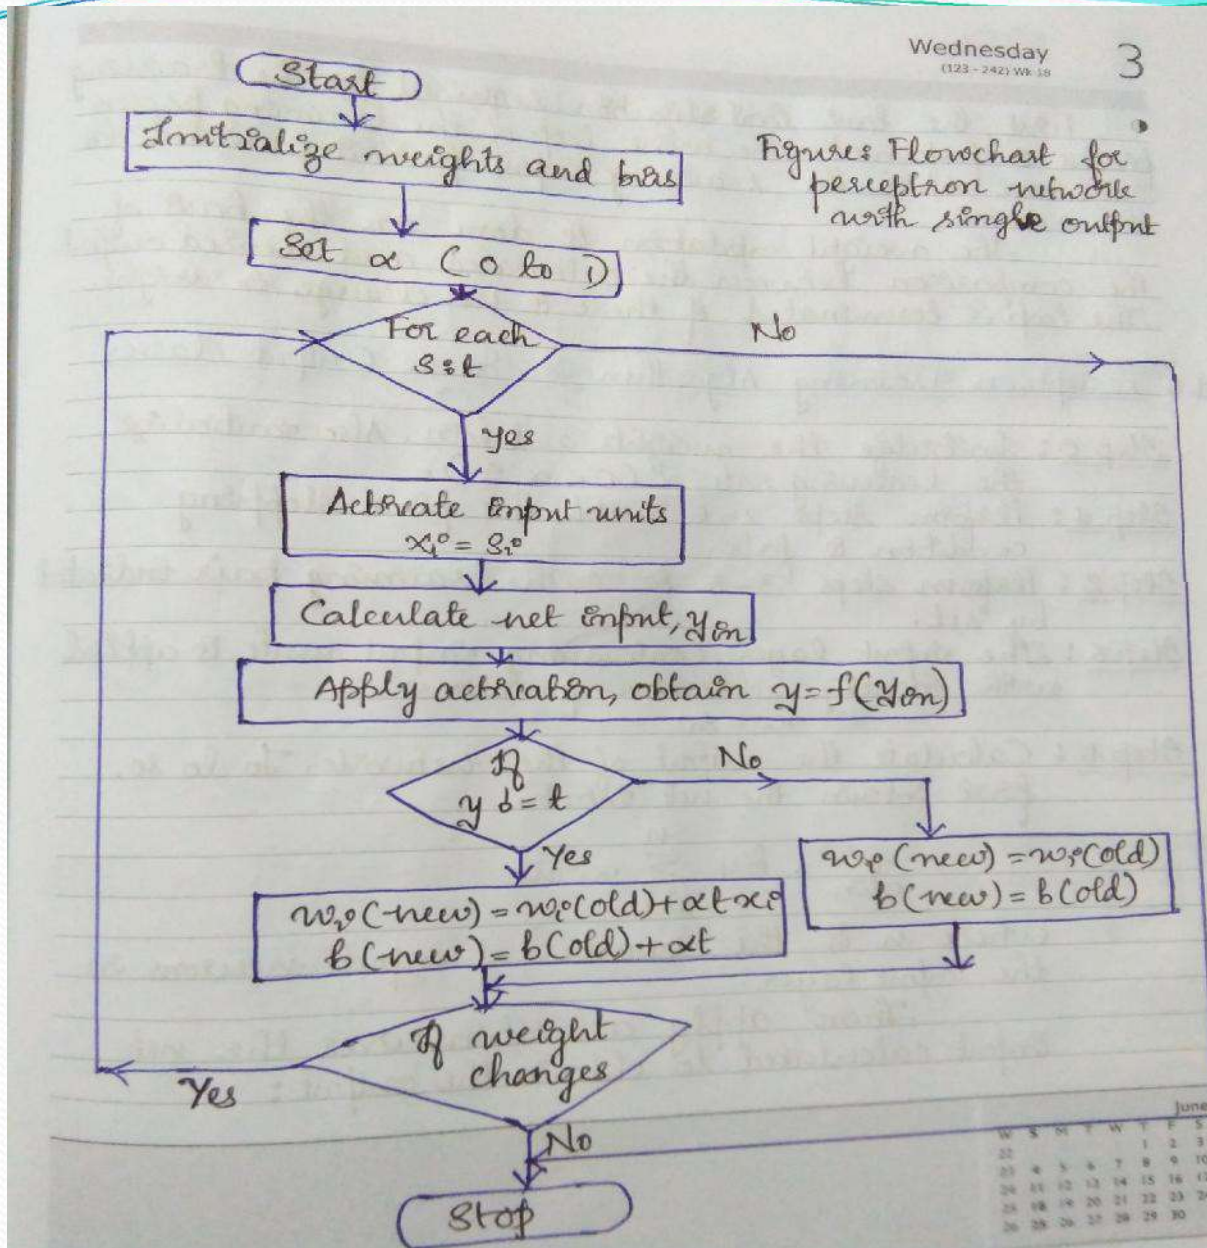 Wednesday
3
(123 - 242) Wk 18
Start
Initialize weights and bias
Figure: Flowchart for
perceptron network
with single output
Set α (0 to 1)
For each
s:t
No
Yes
Activate input units
xi = si
Calculate net input, yin
Apply activation, obtain y = f(yin)
If
y != t
No
Yes
wi(new) = wi(old)
b(new) = b(old)
wi(new) = wi(old) + αtxi
b(new) = b(old) + αt
If weight
changes
Yes
No
Stop
June